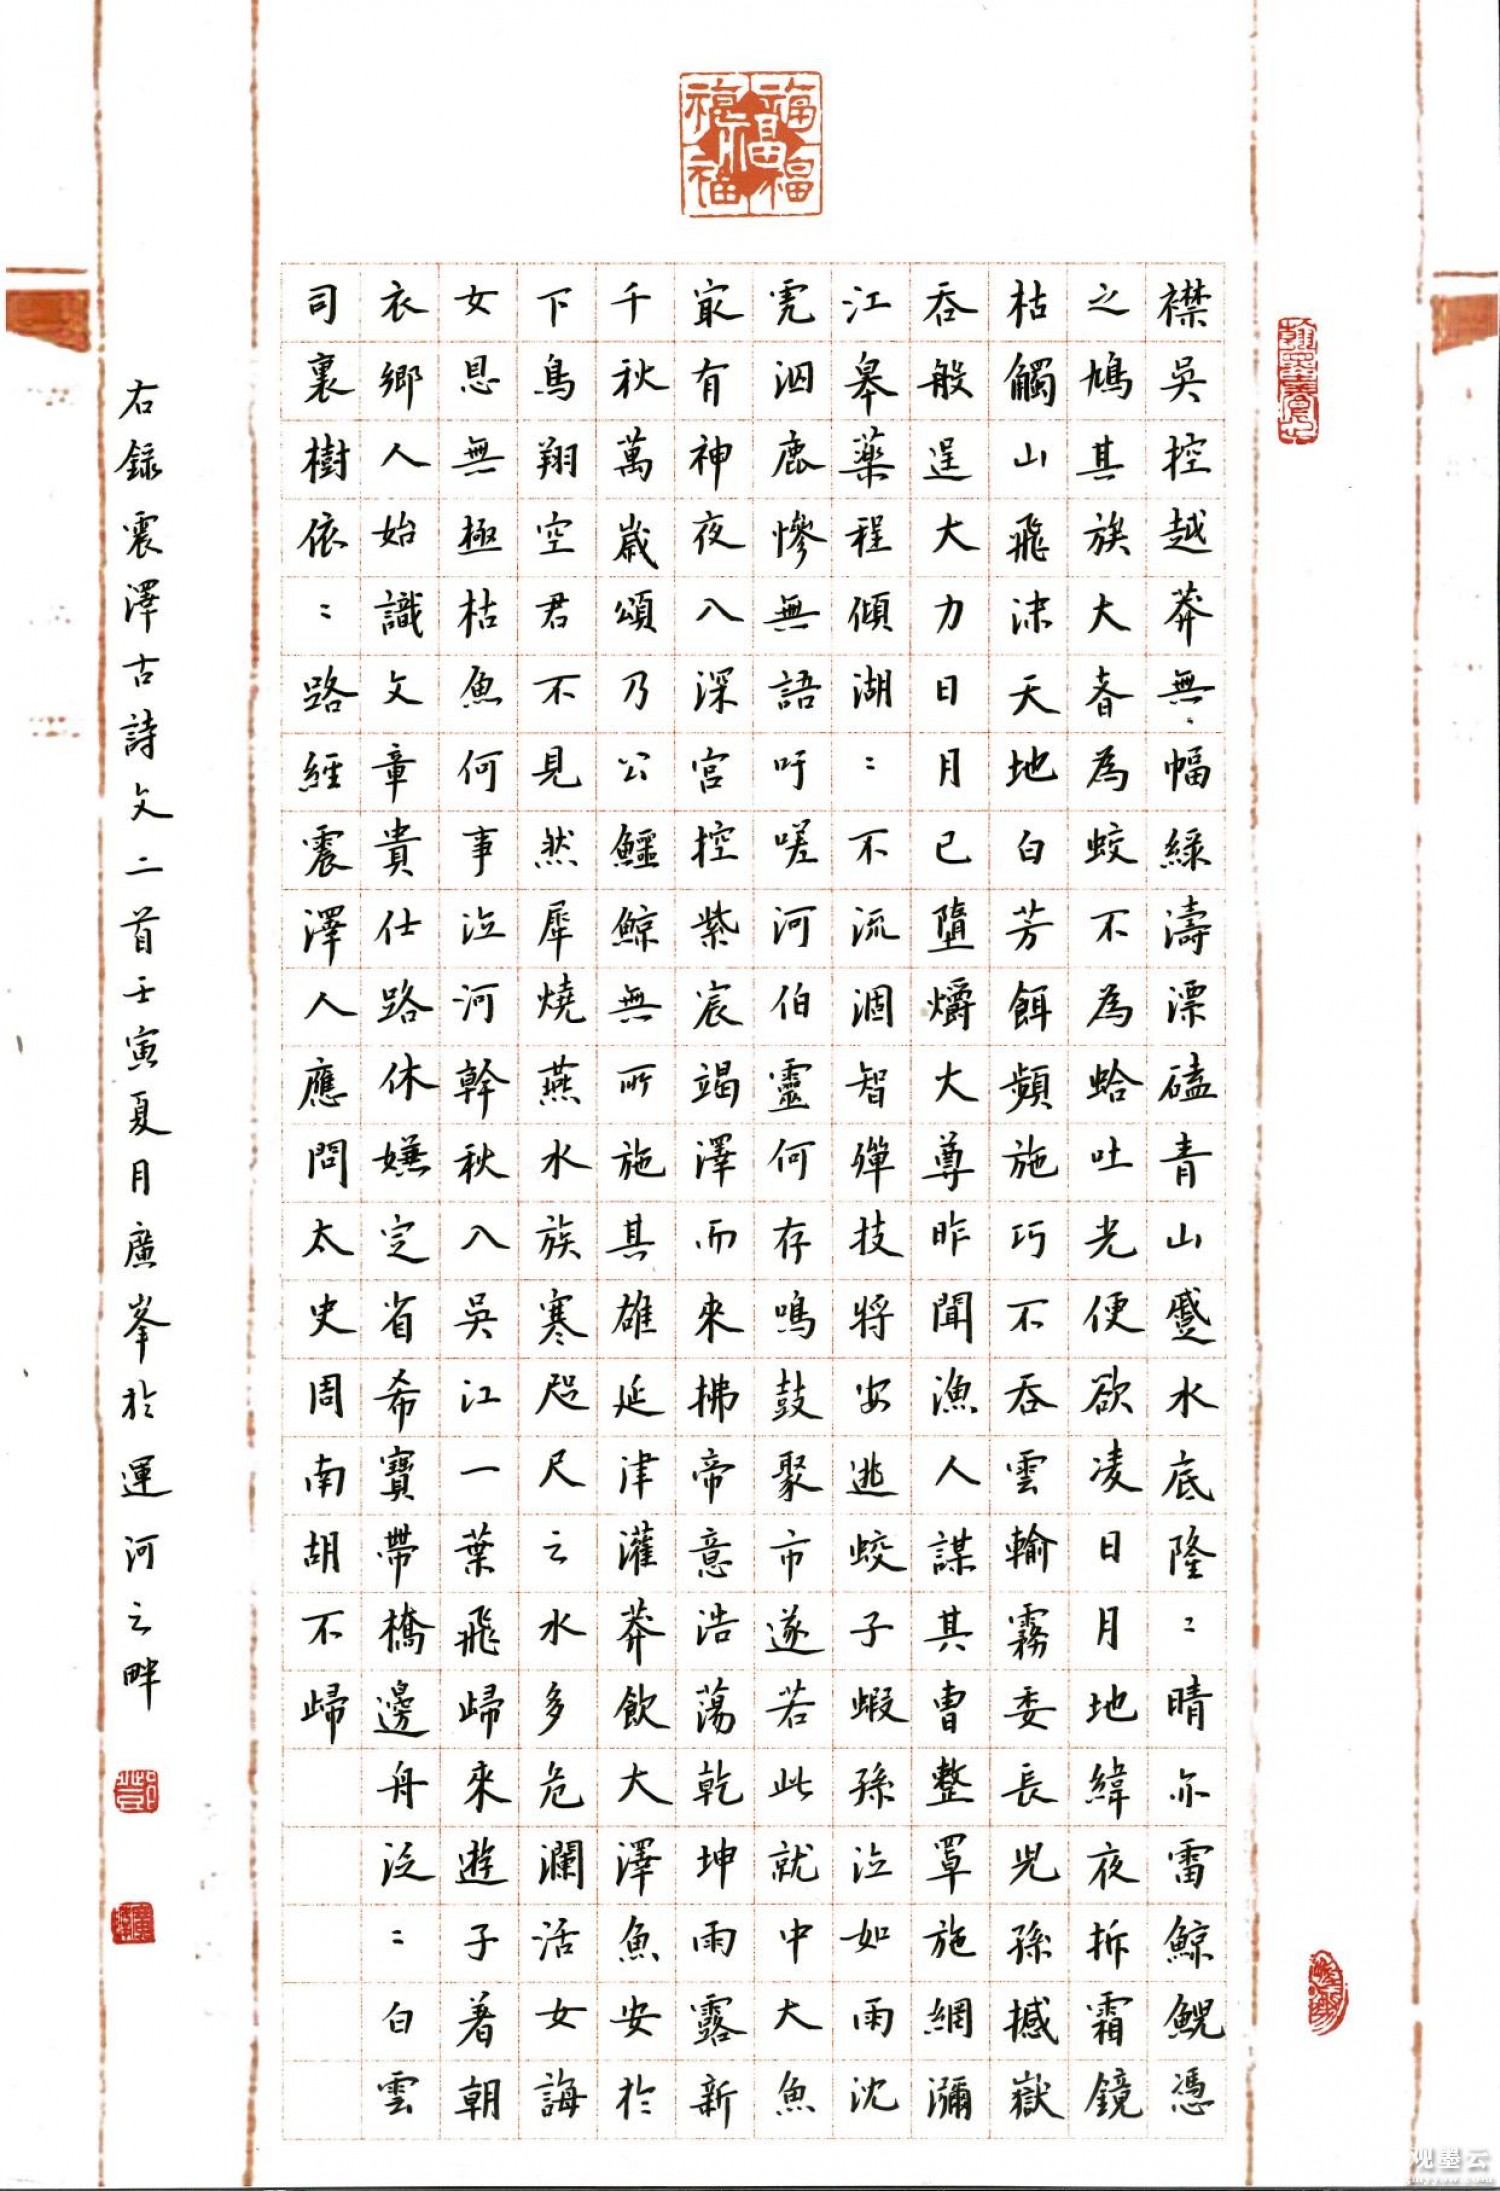 襟吳控越莽無幅綠濤漂磕青山蹙水底隆〻晴亦雷鯨鯢憑
之鳩其族大春為蛟不為蛤吐光便欲凌日月地緯夜拆霜鏡
枯觸山飛沫天地白芳餌頻施巧不吞雲輸霧委長兕孫撼嶽
吞般逞大力日月已墮爝大尊昨聞漁人謀其曹整罩施網瀰
江皋藥程傾湖〻不流涸智殫技將安逃蛟子蝦孫泣如雨沈
虎泅鹿慘無語吁嗟河伯靈何存鳴鼓聚市遂若此就中大魚
㝡有神夜入深宮控紫宸竭澤而來拂帝意浩蕩乾坤雨露新
千秋萬歲頌乃公鱷鯨無所施其雄延津灌莽飲大澤魚安於
下鳥翔空君不見然犀燒燕水族寒咫尺云水多危瀾活女誨
女恩無極枯魚何事泣河幹秋入吳江一葉飛歸來遊子著朝
衣鄉人始識文章貴仕路休嫌定省希寶帶橋邊舟泛〻白雲
司裏樹依〻路經震澤人應問太史周南胡不歸
右錄震澤古詩文二首壬寅夏月廣峯於運河之畔
福福福福福
观墨云